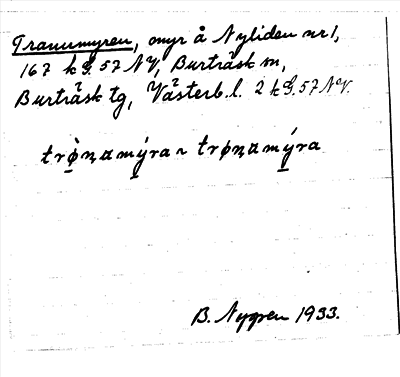 Tranumyren, myr å Nyliden nr 1,
167 k S. 57 NV, Burträsk sn,
Burträsk tg, Västerb. l. 2 k S. 57 NV.
trø̀ṇamýra ~ trøṇamýra
B. Nygren 1933.